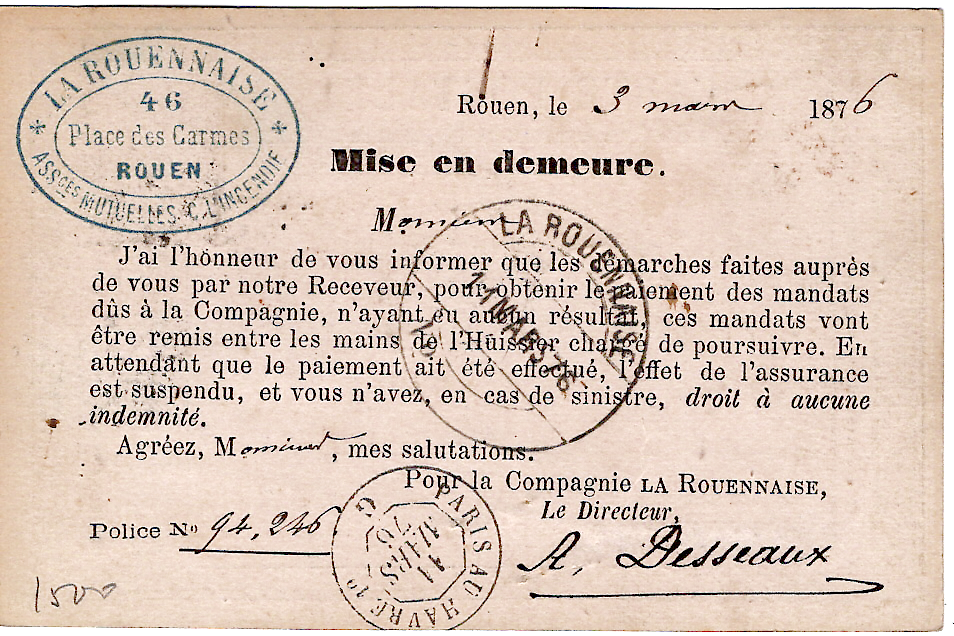 LA ROUENNAISE
46
Place des Carmes
ROUEN
ASSCES MUTUELLES C. L'INCENDIE
Rouen, le 3 mars 1876
Mise en demeure.
Monsieur
LA ROUENNAISE
11 MARS 76
J'ai l'honneur de vous informer que les démarches faites auprès
de vous par notre Receveur, pour obtenir le paiement des mandats
dûs à la Compagnie, n'ayant eu aucun résultat, ces mandats vont
être remis entre les mains de l'Huissier chargé de poursuivre. En
attendant que le paiement ait été effectué, l'effet de l'assurance
est suspendu, et vous n'avez, en cas de sinistre, droit à aucune
indemnité.
Agréez, Monsieur, mes salutations.
Pour la Compagnie LA ROUENNAISE,
Le Directeur,
Police No 94,246
A. Desseaux
PARIS AU HAVRE 1o
11
MARS
76
1500